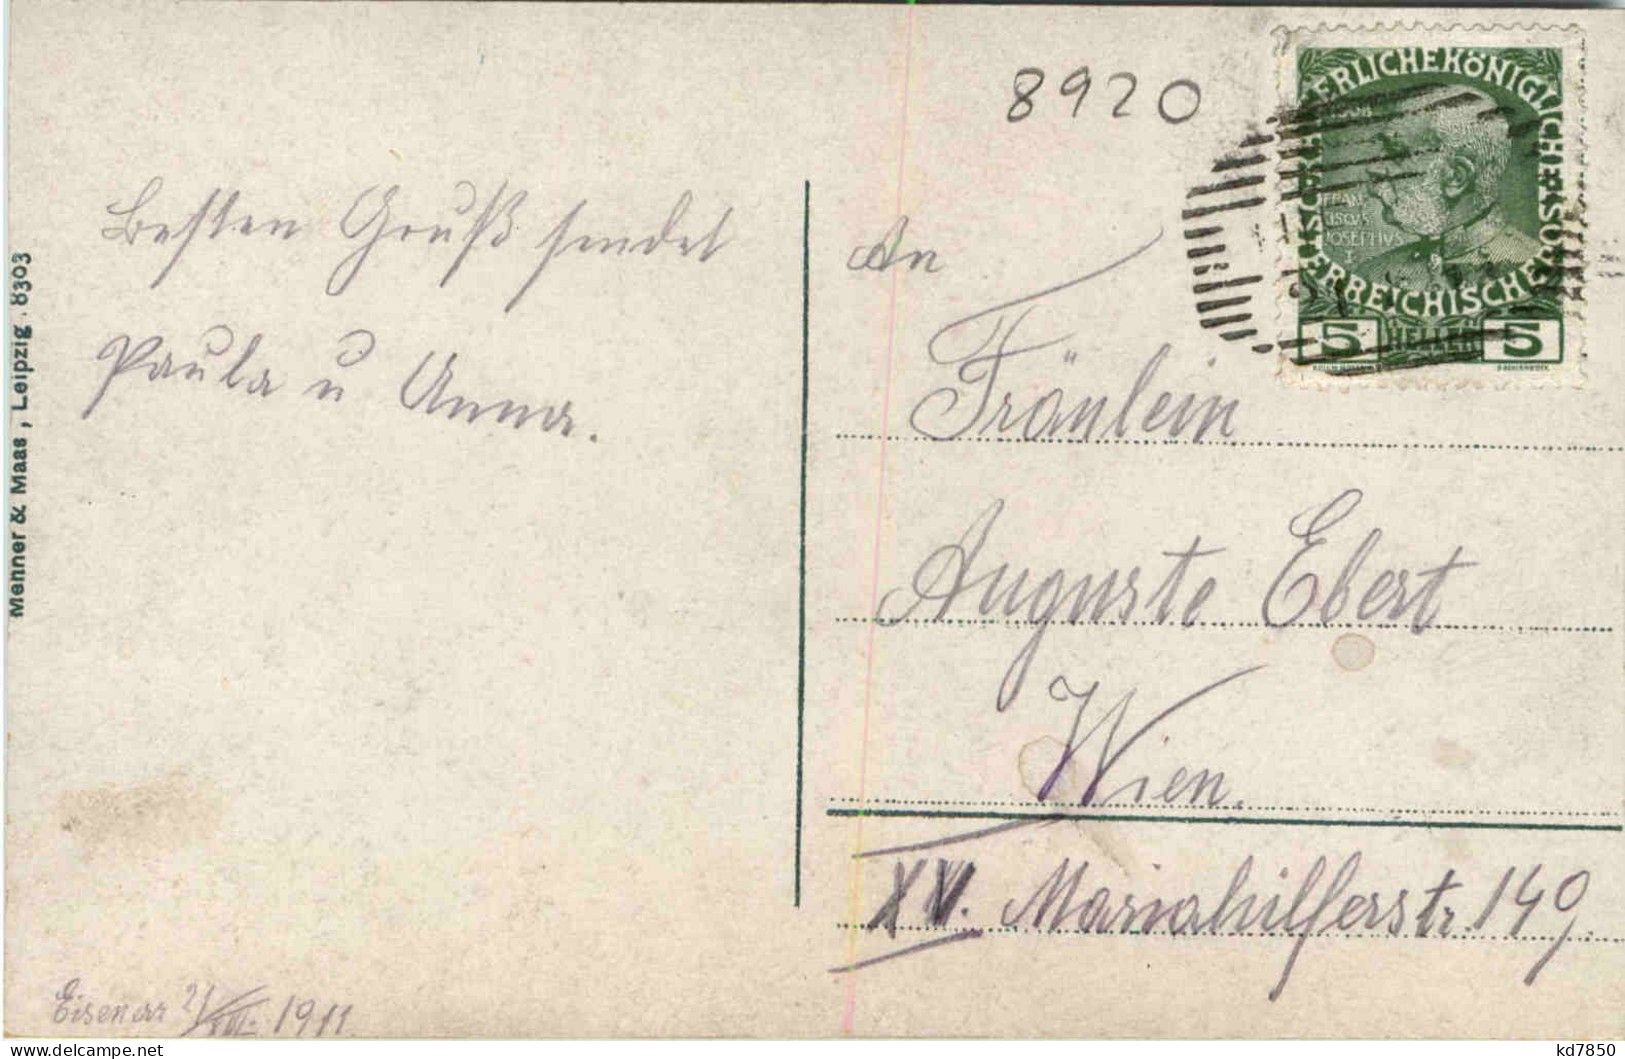 8920
KAISERLICHE KÖNIGLICHE ÖSTERREICHISCHE POST
1908
FRAN
CISCVS
JOSEPHVS
I
5 HELLER 5
Besten Gruß sendet
Paula u Anna.
An
Fräulein
Auguste Ebert
Wien.
XV. Mariahilferstr. 149.
Eisenerz 21/VIII. 1911
Menner & Maas, Leipzig. 8303
delcampe.net
kd7850